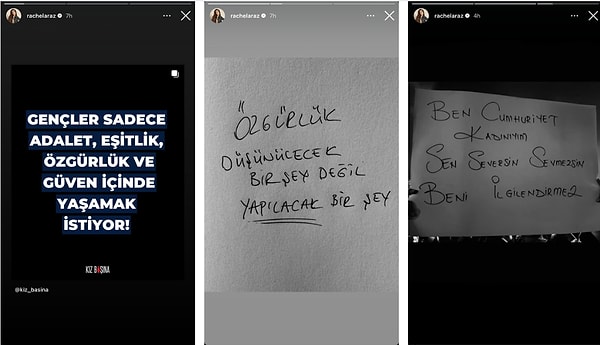 rachelaraz 7h
GENÇLER SADECE
ADALET, EŞİTLİK,
ÖZGÜRLÜK VE
GÜVEN İÇİNDE
YAŞAMAK
İSTİYOR!
KIZ BAŞINA
@kiz_basina
rachelaraz 7h
ÖZGÜRLÜK
DÜŞÜNÜLECEK
BİR ŞEY DEĞİL
YAPILACAK BİR ŞEY
rachelaraz 4h
BEN CUMHURİYET
KADINIYIM
SEN SEVERSİN SEVMEZSİN
BENİ İLGİLENDİRMEZ